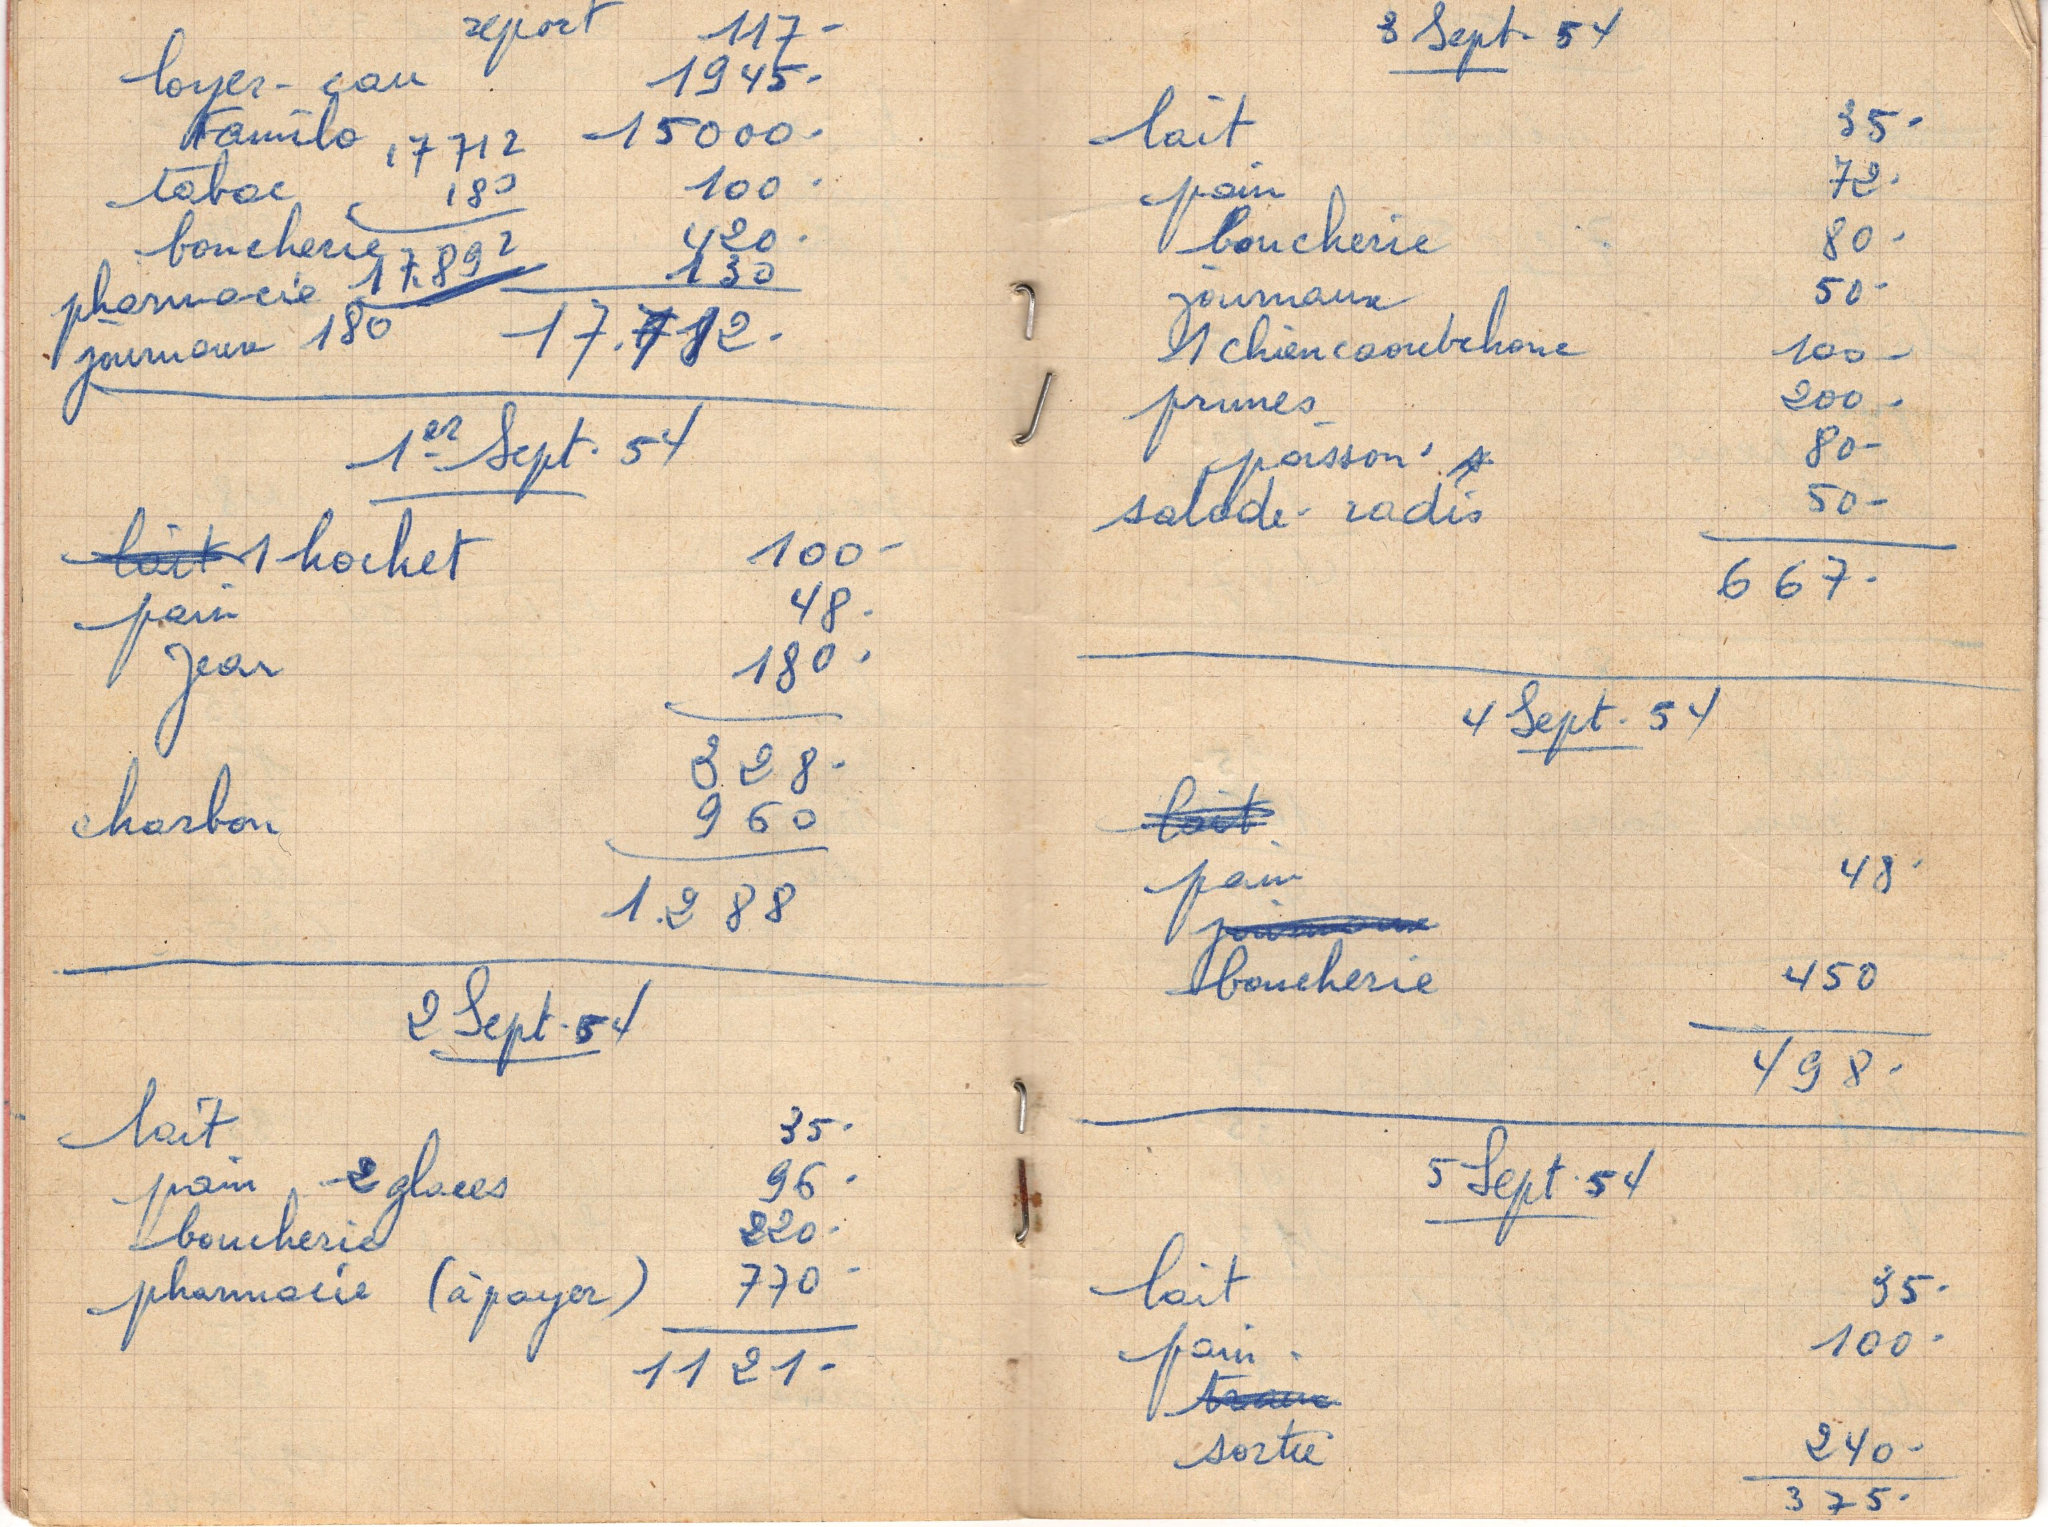 report 117-
loyer-eau 1945-
Familo 15000-
17712
tabac 180 100-
boucherie 420-
17.892 130
pharmacie
journaux 180 17.712-
1er Sept. 54
lait 1 hochet 100-
pain 48-
Jean 180-
328-
charbon 960
1.288
2 Sept. 54
lait 35-
pain - 2 glaces 96-
boucherie 220-
pharmacie (à payer) 770-
1121-
3 Sept. 54
lait 35-
pain 72-
boucherie 80-
journaux 50-
1 chien caoutchouc 100-
prunes 200-
poisson 80-
salade - radis 50-
667-
4 Sept. 54
lait
pain 48-
journaux
boucherie 450
498-
5 Sept. 54
lait 35-
pain - 100-
sortie 240-
375-